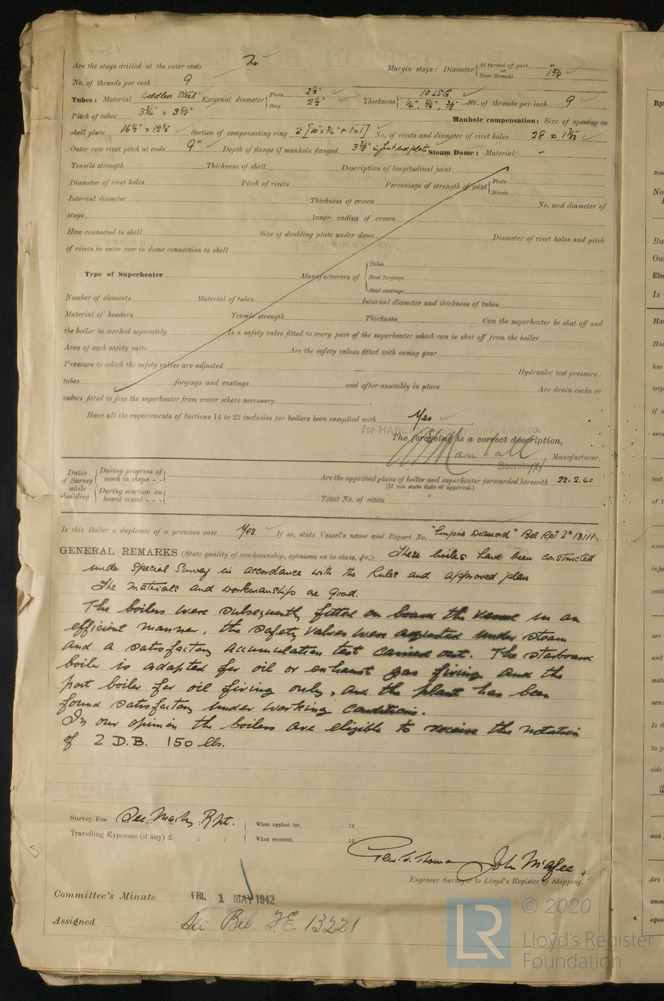 Are the stays drilled at the outer ends No Margin stays: Diameter { At turned off part, or Over threads
No. of threads per inch 9
Tubes: Material External diameter { Plain 2½" Stay 2½" Thickness { 10 LSG No. of threads per inch 9
Pitch of tubes Manhole compensation: Size of opening in
shell plate 16½" x 12½" Section of compensating ring No. of rivets and diameter of rivet holes 28
Outer row rivet pitch at ends 9" Depth of flange if manhole flanged Steam Dome: Material
Tensile strength Thickness of shell Description of longitudinal joint
Diameter of rivet holes Pitch of rivets Percentage of strength of joint { Plate Rivets
Internal diameter Thickness of crown No. and diameter of
stays Inner radius of crown
How connected to shell Size of doubling plate under dome Diameter of rivet holes and pitch
of rivets in outer row in dome connection to shell
Type of Superheater Manufacturers of { Tubes Steel forgings Steel castings
Number of elements Material of tubes Internal diameter and thickness of tubes
Material of headers Tensile strength Thickness Can the superheater be shut off and
the boiler be worked separately Is a safety valve fitted to every part of the superheater which can be shut off from the boiler
Area of each safety valve Are the safety valves fitted with easing gear
Pressure to which the safety valves are adjusted Hydraulic test pressure:
tubes forgings and castings and after assembly in place Are drain cocks or
valves fitted to free the superheater from water where necessary
Have all the requirements of Sections 14 to 22 inclusive for boilers been complied with Yes
for HARLAND & WOLFF, Limited
The foregoing is a correct description,
Marshall Manufacturer.
Secretary
Dates of Survey while building { During progress of work in shops Are the approved plans of boiler and superheater forwarded herewith 22.2.40
(If not state date of approval.)
During erection on board vessel Total No. of visits
Is this Boiler a duplicate of a previous case Yes If so, state Vessel's name and Report No. "Empire Diamond" Bel Rpt
GENERAL REMARKS (State quality of workmanship, opinions as to class, &c.) These boilers have been constructed
under Special Survey in accordance with the Rules and approved plan
The materials and workmanship are good.
The boilers were subsequently fitted on board the vessel in an
efficient manner, the safety valves were adjusted under steam
and a satisfactory accumulation test carried out. The starboard
boiler is adapted for oil or exhaust gas firing and the
port boiler for oil firing only, and the plant has been
found satisfactory under working conditions.
In our opinion the boilers are eligible to receive the notation
of 2 D.B. 150 lbs.
Survey Fee See Machy Rpt. When applied for, 19
Travelling Expenses (if any) £ : : When received, 19
Geo. S. Thomson John McAfee
Engineer Surveyor to Lloyd's Register of Shipping.
Committee's Minute FRI. 1 MAY 1942
Assigned See Bel. F.E. 13221
LR © 2020
Lloyd's Register
Foundation